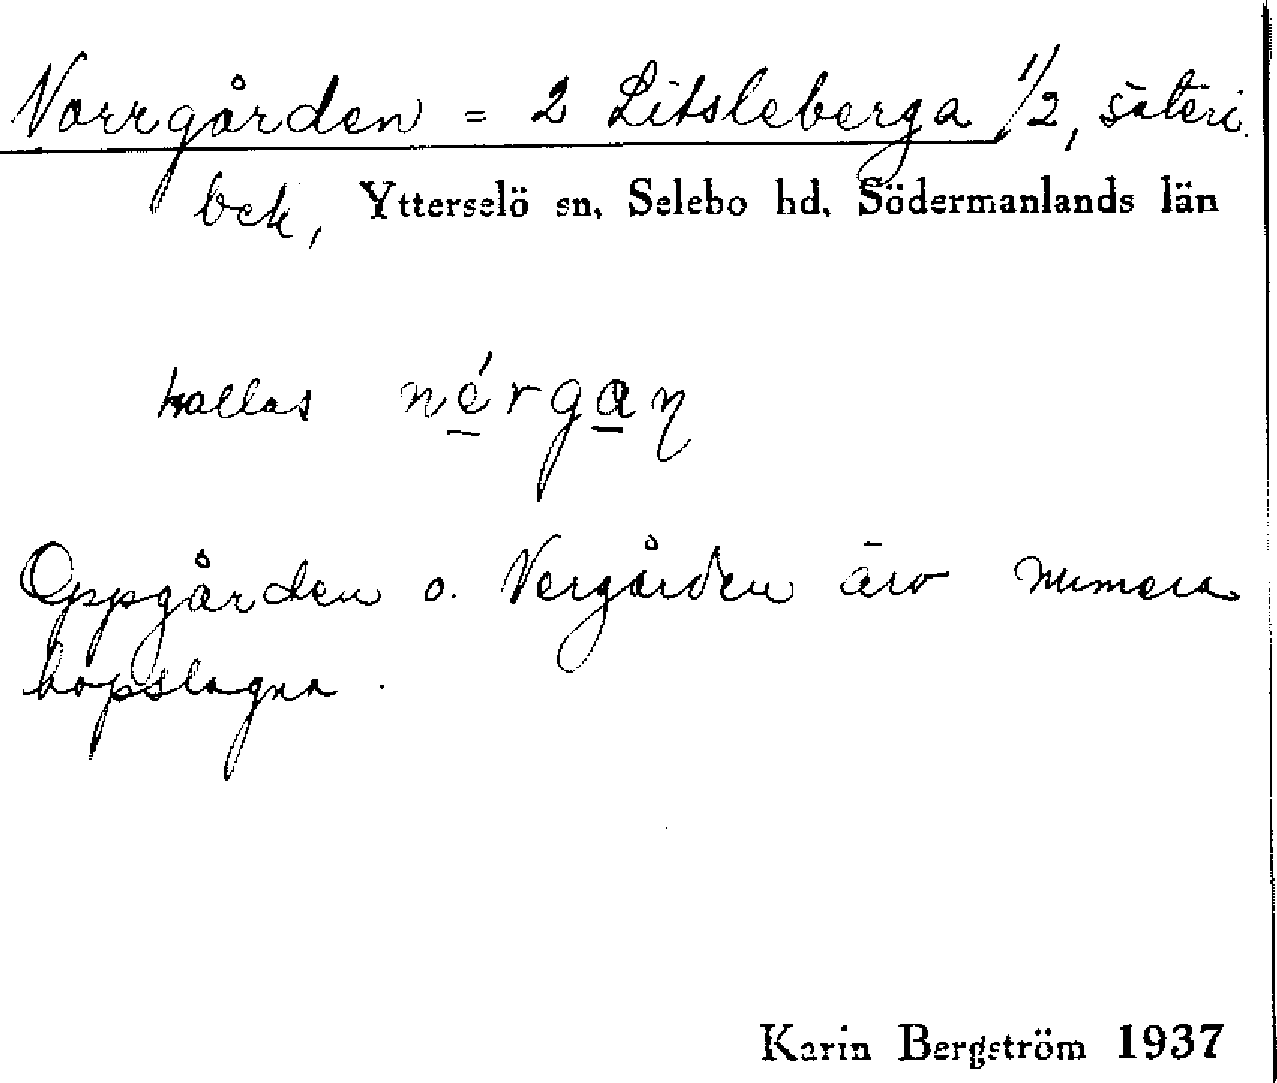 Norrgården = 2 Litsleberga 1/2, säteri
bek, Ytterselö sn, Selebo hd, Södermanlands län
kallas nérgaɳ
Oppgården o. Nergården äro numera
hopslagna.
Karin Bergström 1937